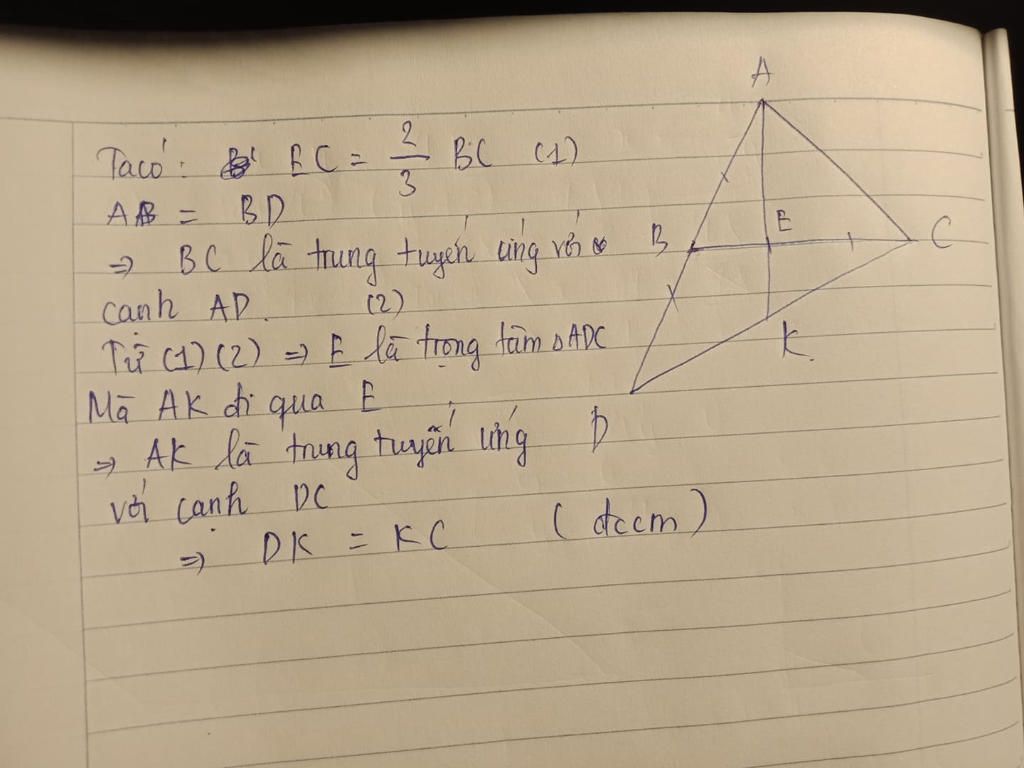 Ta có: EC = 2/3 BC (1)
AB = BD
⇒ BC là trung tuyến ứng với
cạnh AD. (2)
Từ (1) (2) ⇒ E là trọng tâm △ADC
Mà AK đi qua E
⇒ AK là trung tuyến ứng
với cạnh DC
⇒ DK = KC (đccm)
A
B
E
C
K.
D